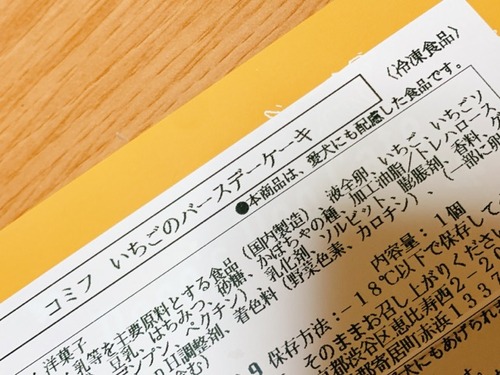 〈冷凍食品〉
コミフ いちごのバースデーケーキ
●本商品は、愛犬にも配慮した食品です。
洋菓子
乳等を主要原料とする食品(国内製造)、液全卵、いちご、いちごソ
豆乳、はちみつ、砂糖、かぼちゃの種、加工油脂/トレハロース
デンプン、ペクチン)、乳化剤、ソルビット、膨脹剤、香料、ゲ
H調整剤、着色料(野菜色素、カロチン)、(一部に卵
む)
内容量:1個
保存方法:-18℃以下で保存して
そのままお召し上がりください
都渋谷区恵比寿西2-20
郡寄居町赤浜133
犬にもあげられ